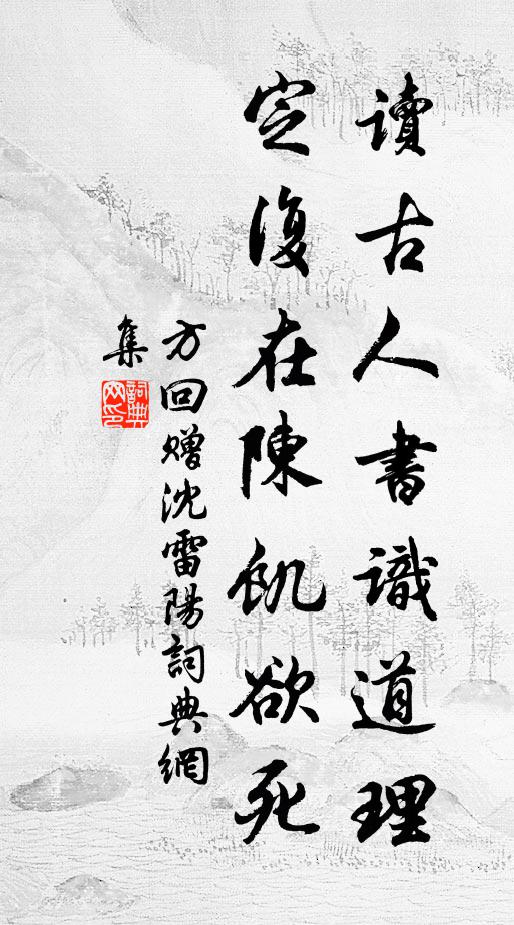 讀古人書識道理
定復在陳飢欲死
方回贈沈雷陽詞典網
集
詞典
网印